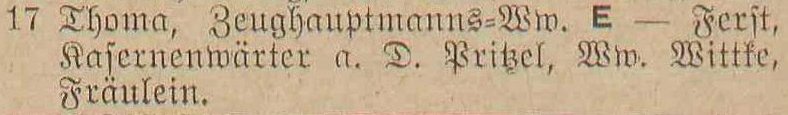 17 Thoma, Zeughauptmanns-Ww. E — Ferst,
Kasernenwärter a. D. Pritzel, Ww. Wittke,
Fräulein.